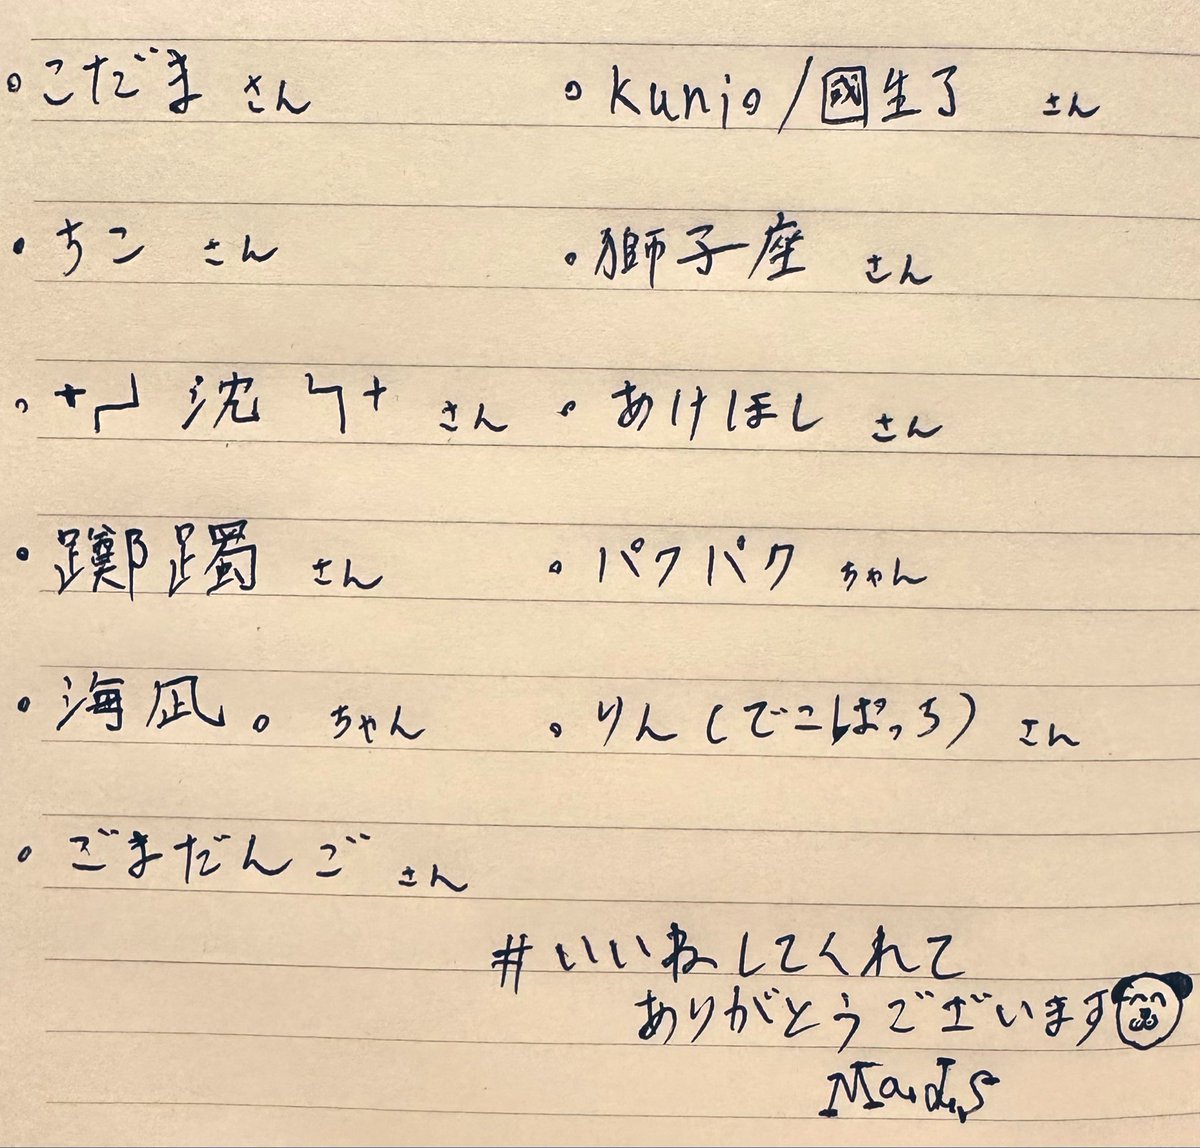 。こだま さん
。kunio/國生了 さん
・ちこ さん
。獅子座 さん
。沈 さん
・あけほし さん
・躑躅 さん
。パクパク ちゃん
・海凪。 ちゃん
。りん(でこぱっち) さん
・ごまだんご さん
#いいねしてくれて
ありがとうございます
Mads